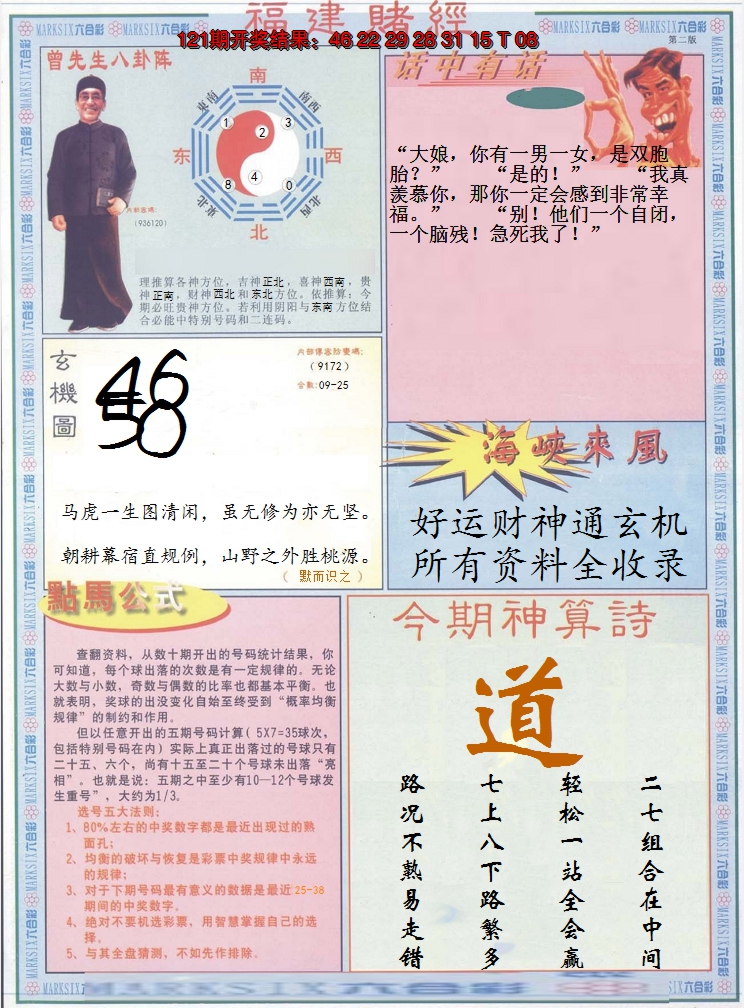 福建賭經
121期开奖结果：46 22 29 28 31 15 T 08
第二版
MARKSIX六合彩
曾先生八卦阵
南
东南
南西
1
2
3
东
西
8
4
0
东北
北西
北
內部密碼:
(936120)
理推算各神方位，吉神正北，喜神西南，贵
神正南，财神西北和东北方位。依推算：今
期必旺贵神方位。若利用阴阳与东南方位结
合必能中特别号码和二连码。
话中有话
“大娘，你有一男一女，是双胞
胎？” “是的！” “我真
羡慕你，那你一定会感到非常幸
福。” “别！他们一个自闭，
一个脑残！急死我了！”
玄機圖
46
50
內部傳密防變碼:
(9172)
合數:09-25
马虎一生图清闲，虽无修为亦无坚。
朝耕幕宿直规例，山野之外胜桃源。
（ 默而识之 ）
海峽來風
好运财神通玄机
所有资料全收录
點馬公式
查翻资料，从数十期开出的号码统计结果，你
可知道，每个球出落的次数是有一定规律的。无论
大数与小数，奇数与偶数的比率也都基本平衡。也
就表明，奖球的出没变化自始至终受到“概率均衡
规律”的制约和作用。
但以任意开出的五期号码计算( 5X7=35球次,
包括特别号码在内) 实际上真正出落过的号球只有
二十五、六个，尚有十五至二十个号球未出落“亮
相”。也就是说：五期之中至少有10—12个号球发
生重号”，大约为1/3。
选号五大法则：
1、80%左右的中奖数字都是最近出现过的熟
面孔；
2、均衡的破坏与恢复是彩票中奖规律中永远
的规律；
3、对于下期号码最有意义的数据是最近25-38
期间的中奖数字。
4、绝对不要机选彩票，用智慧掌握自己的选
择。
5、与其全盘猜测，不如先作排除。
今期神算詩
道
二七组合在中间
轻松一站全会赢
七上八下路繁多
路况不熟易走错